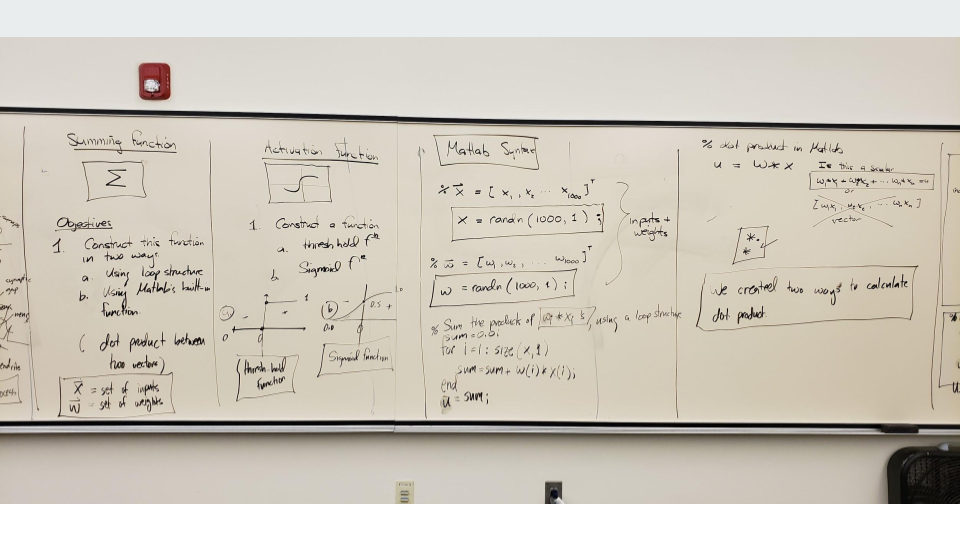 Summing Function
Σ
Objectives
1. Construct this function
in two ways:
a. Using loop structure
b. Using Matlab's built-in
function.
( dot product between
two vectors)
X = set of inputs
W = set of weights
Activation Function
1. Construct a function
a. threshold f
b. Sigmoid f
a
1
0
0
threshold
function
b
1.0
0.5
0.0
0
Sigmoid function
Matlab Syntax
% X = [ x₁, x₂ ... x₁₀₀₀ ]ᵀ
X = randn (1000, 1) ;
% w = [w₁, w₂, ... w₁₀₀₀]ᵀ
w = randn (1000, 1) ;
inputs +
weights
% Sum the product of using a loop structure
sum = 0.0;
for i=1: size (x,1)
sum = sum + w(i) * x(i);
end
u = sum;
% dot product in Matlab
u = w * x
Is this a scalar
w₁*x₁ + w₂*x₂ + ... wₙ*xₙ = u
or
[ w₁x₁, w₂x₂, ... wₙxₙ ]
vector
*.
*
we created two ways to calculate
dot product